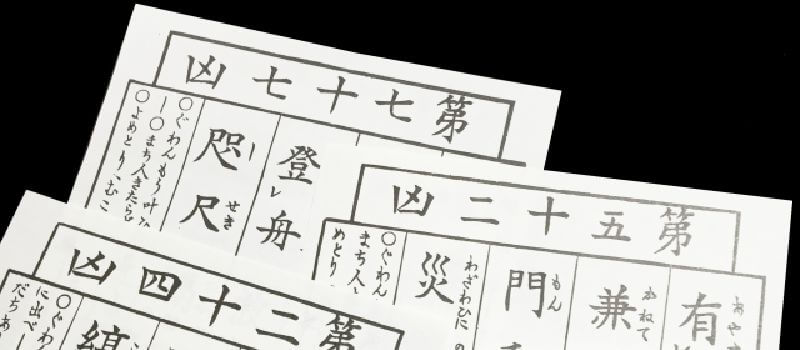 第七十七凶
登レ舟
咫尺せき
○ぐわんもう叶ひ
○まち人きたらず
○よめとり、むこ
第五十二凶
有
兼かねて
門もん
災わざわひに
○ぐわん
まち人
めとり
第二十四凶
○ぐわ
に出べ
だちあ